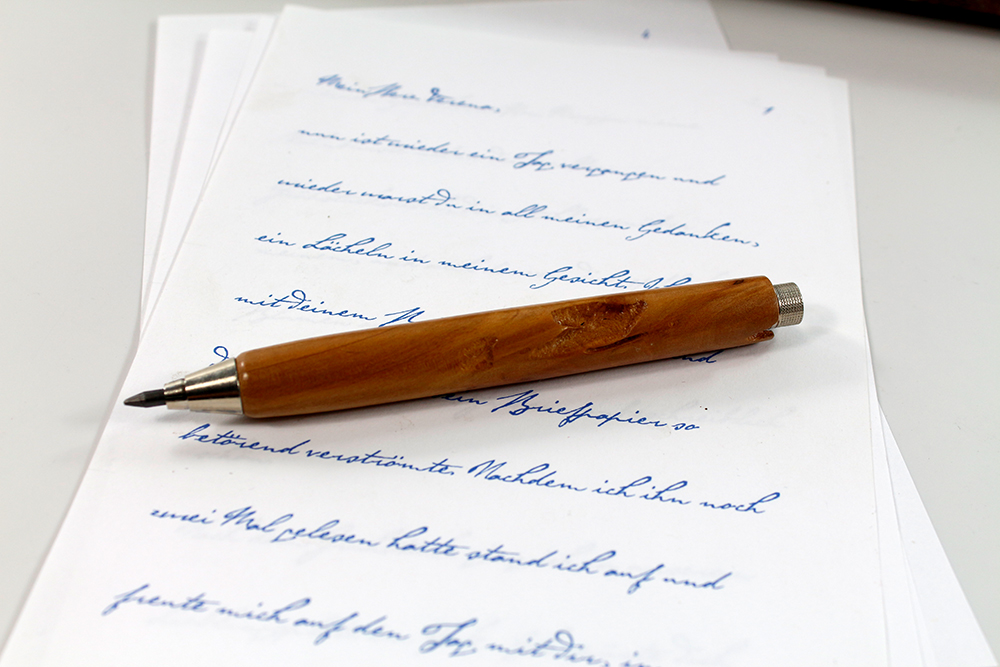 Mein Herz Verena,
nun ist wieder ein Tag vergangen und
wieder warst du in all meinen Gedanken,
ein Lächeln in meinem Gesicht.
mit deinem
Briefpapier so
betörend verströmte. Nachdem ich ihn noch
zwei Mal gelesen hatte stand ich auf und
freute mich auf den Tag mit dir, in